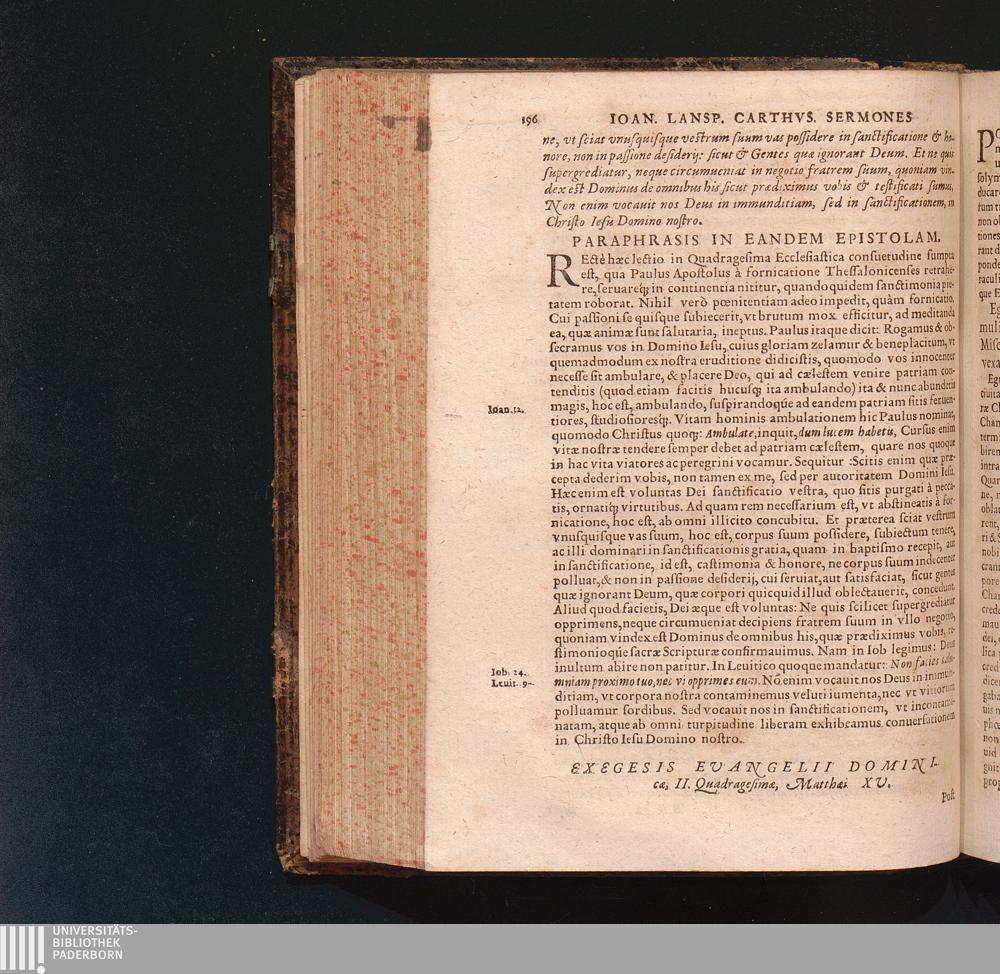 196 IOAN. LANSP. CARTHVS. SERMONES
ne, vt ſciat vnuſquiſque veſtrum ſuum vas poſſidere in ſanctificatione & ho-
nore, non in paſſione deſiderij: ſicut & Gentes quæ ignorant Deum. Et ne quis
ſupergrediatur, neque circumueniat in negotio fratrem ſuum, quoniam vin-
dex eſt Dominus de omnibus his, ſicut prædiximus vobis & teſtificati ſumus,
Non enim vocauit nos Deus in immunditiam, ſed in ſanctificationem, in
Chriſto Ieſu Domino noſtro.
PARAPHRASIS IN EANDEM EPISTOLAM.
REctè hæc lectio in Quadrageſima Eccleſiaſtica conſuetudine ſumpta
eſt, qua Paulus Apoſtolus à fornicatione Theſſalonicenſes retrahe-
re, ſeruareq́; in continentia nititur, quandoquidem ſanctimonia pie-
tatem roborat. Nihil verò pœnitentiam adeo impedit, quàm fornicatio.
Cui paſſioni ſe quiſque ſubiecerit, vt brutum mox efficitur, ad meditanda
ea, quæ animæ ſunt ſalutaria, ineptus. Paulus itaque dicit: Rogamus & ob-
ſecramus vos in Domino Ieſu, cuius gloriam zelamur & beneplacitum, vt
quemadmodum ex noſtra eruditione didiciſtis, quomodo vos innocenter
neceſſe ſit ambulare, & placere Deo, qui ad cæleſtem venire patriam con-
tenditis (quod etiam facitis hucuſq; ita ambulando) ita & nunc abundetis
Ioan. 12. magis, hoc eſt, ambulando, ſuſpirandoqúe ad eandem patriam ſitis feruen-
tiores, ſtudioſioresq́;. Vitam hominis ambulationem hic Paulus nominat,
quomodo Chriſtus quoq;: Ambulate, inquit, dum lucem habetis, Curſus enim
vitæ noſtræ tendere ſemper debet ad patriam cæleſtem, quare nos quoque
in hac vita viatores ac peregrini vocamur. Sequitur: Scitis enim quæ præ-
cepta dederim vobis, non tamen ex me, ſed per autoritatem Domini Ieſu.
Hæc enim eſt voluntas Dei ſanctificatio veſtra, quo ſitis purgati à pecca-
tis, ornatiq́; virtutibus. Ad quam rem neceſſarium eſt, vt abſtineatis à for-
nicatione, hoc eſt, ab omni illicito concubitu. Et præterea ſciat veſtrum
vnuſquiſque vas ſuum, hoc eſt, corpus ſuum poſſidere, ſubiectum tenere,
ac illi dominari in ſanctificationis gratia, quam in baptiſmo recepit, aut
in ſanctificatione, id eſt, caſtimonia & honore, ne corpus ſuum indecenter
polluat, & non in paſſione deſiderij, cui ſeruiat, aut ſatisfaciat, ſicut gentes
quæ ignorant Deum, quæ corpori quicquid illud oblectauerit, concedunt.
Aliud quod facietis, Dei æque eſt voluntas: Ne quis ſcilicet ſupergrediatur
opprimens, neque circumueniat decipiens fratrem ſuum in vllo negotio,
quoniam vindex eſt Dominus de omnibus his, quæ prædiximus vobis, te-
ſtimonioqúe ſacræ Scripturæ confirmauimus. Nam in Iob legimus: Deus
Iob. 24. inultum abire non patitur. In Leuitico quoque mandatur: Non facies calu-
Leuit. 9. mniam proximo tuo, nec vi opprimes eum. Nō enim vocauit nos Deus in immun-
ditiam, vt corpora noſtra contaminemus veluti iumenta, nec vt vitiorum
polluamur ſordibus. Sed vocauit nos in ſanctificationem, vt incontami-
natam, atque ab omni turpitudine liberam exhibeamus conuerſationem
in Chriſto Ieſu Domino noſtro.
EXEGESIS EVANGELII DOMINI-
cæ, II. Quadrageſimæ, Matthæi XV.
Poſt
UNIVERSITÄTS-
BIBLIOTHEK
PADERBORN